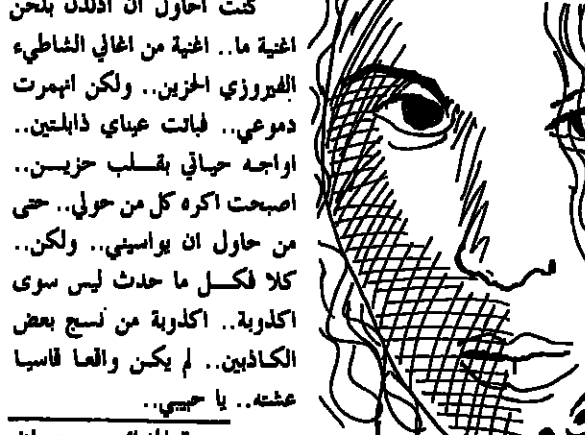 كنت احاول ان ادندن بلحن
اغنية ما.. اغنية من اغاني الشاطيء
الفيروزي الحزين.. ولكن انهمرت
دموعي.. فباتت عيناي ذابلتين..
اواجه حياتي بقلب حزين..
اصبحت اكره كل من حولي.. حتى
من حاول ان يواسيني.. ولكن..
كلا فكل ما حدث ليس سوى
اكذوبة.. اكذوبة من نسج بعض
الكاذبين.. لم يكن واقعا قاسيا
عشته.. يا حبيبي..